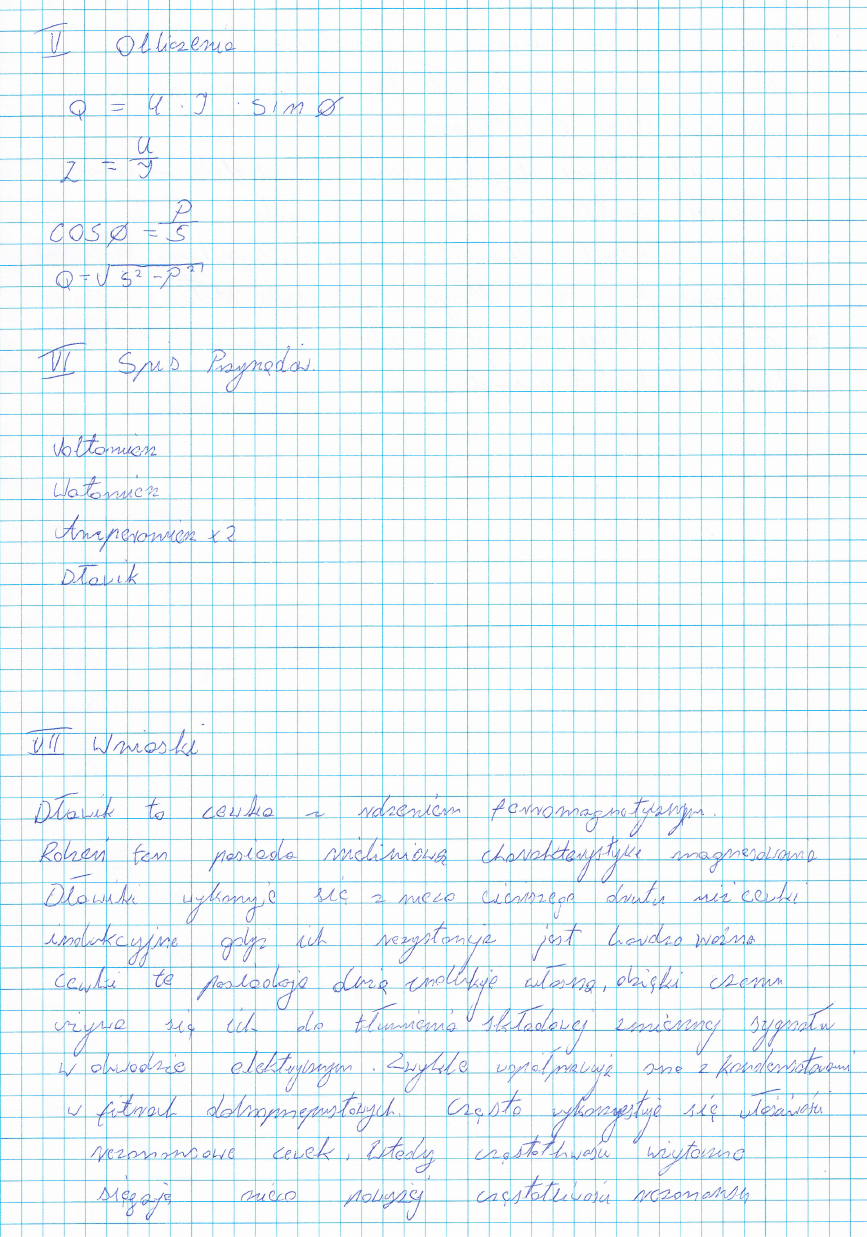 V Obliczenia
Q = U · I · sin ø
Z = U/I
cos ø = P/S
Q = √S² - P²
VI Spis Przyrządów.
Voltomierz
Watomierz
Amperomierz x 2
Dławik
VII Wnioski
Dławik to cewka z rdzeniem ferromagnetycznym.
Rdzeń ten posiada nieliniową charakterystykę magnesowania
Dławiki wykonuje się z nieco cieńszego drutu niż cewki
indukcyjne gdyż ich rezystancja jest bardzo ważna
cewki te posiadają dużą indukcję własną, dzięki czemu
używa się ich do tłumienia składowej zmiennej sygnału
w obwodzie elektrycznym. Zwykle współpracują one z kondensatorami
w filtrach dolnoprzepustowych. Często wykorzystuje się własności
rezonansowe cewek, Wtedy częstotliwości
sięgają nieco powyżej częstotliwości rezonansu